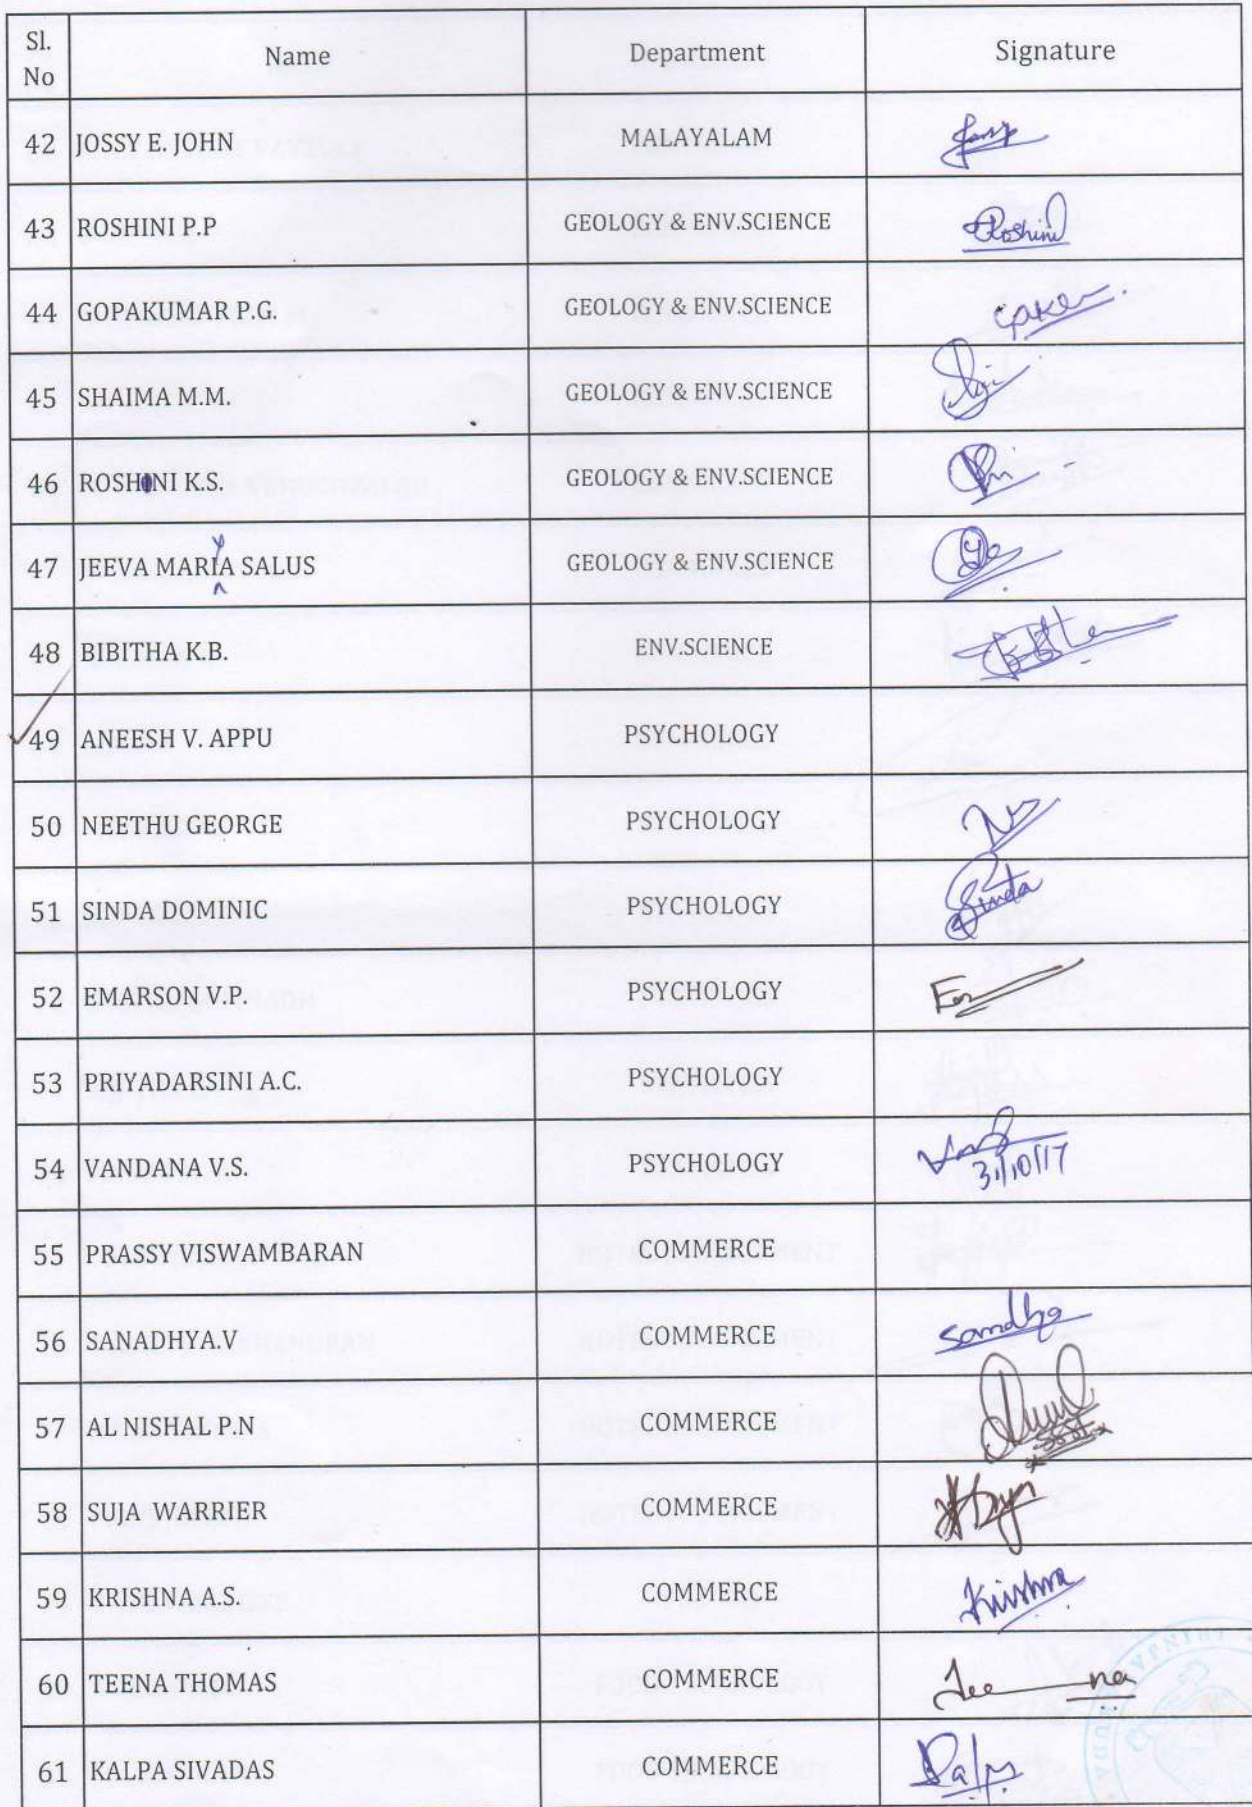 Sl. No Name Department Signature
42 JOSSY E. JOHN MALAYALAM
43 ROSHINI P.P GEOLOGY & ENV.SCIENCE Roshini
44 GOPAKUMAR P.G. GEOLOGY & ENV.SCIENCE
45 SHAIMA M.M. GEOLOGY & ENV.SCIENCE
46 ROSHNI K.S. GEOLOGY & ENV.SCIENCE
47 JEEVA MARIYA SALUS GEOLOGY & ENV.SCIENCE
48 BIBITHA K.B. ENV.SCIENCE
49 ANEESH V. APPU PSYCHOLOGY
50 NEETHU GEORGE PSYCHOLOGY
51 SINDA DOMINIC PSYCHOLOGY Sinda
52 EMARSON V.P. PSYCHOLOGY
53 PRIYADARSINI A.C. PSYCHOLOGY
54 VANDANA V.S. PSYCHOLOGY 31/10/17
55 PRASSY VISWAMBARAN COMMERCE
56 SANADHYA.V COMMERCE
57 AL NISHAL P.N COMMERCE
58 SUJA WARRIER COMMERCE
59 KRISHNA A.S. COMMERCE Krishna
60 TEENA THOMAS COMMERCE Tee na
61 KALPA SIVADAS COMMERCE